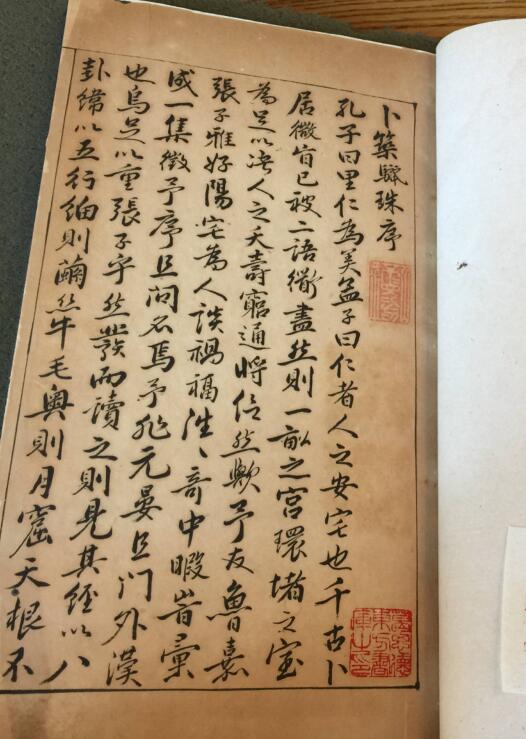 卜築驪珠序
孔子曰里仁為美孟子曰仁者人之安宅也千古卜
居微旨已被二語衟盡然則一畝之宮環堵之室
為足以決人之夭壽窮通將信然歟予友魯嘉
張子雅好陽宅為人談禍福往〻奇中暇嘗彙
成一集徵予序且問名焉予非元晏且門外漢
也烏足以重張子乎然發而讀之則見其經以八
卦緯以五行細則繭絲牛毛奧則月窟天根不